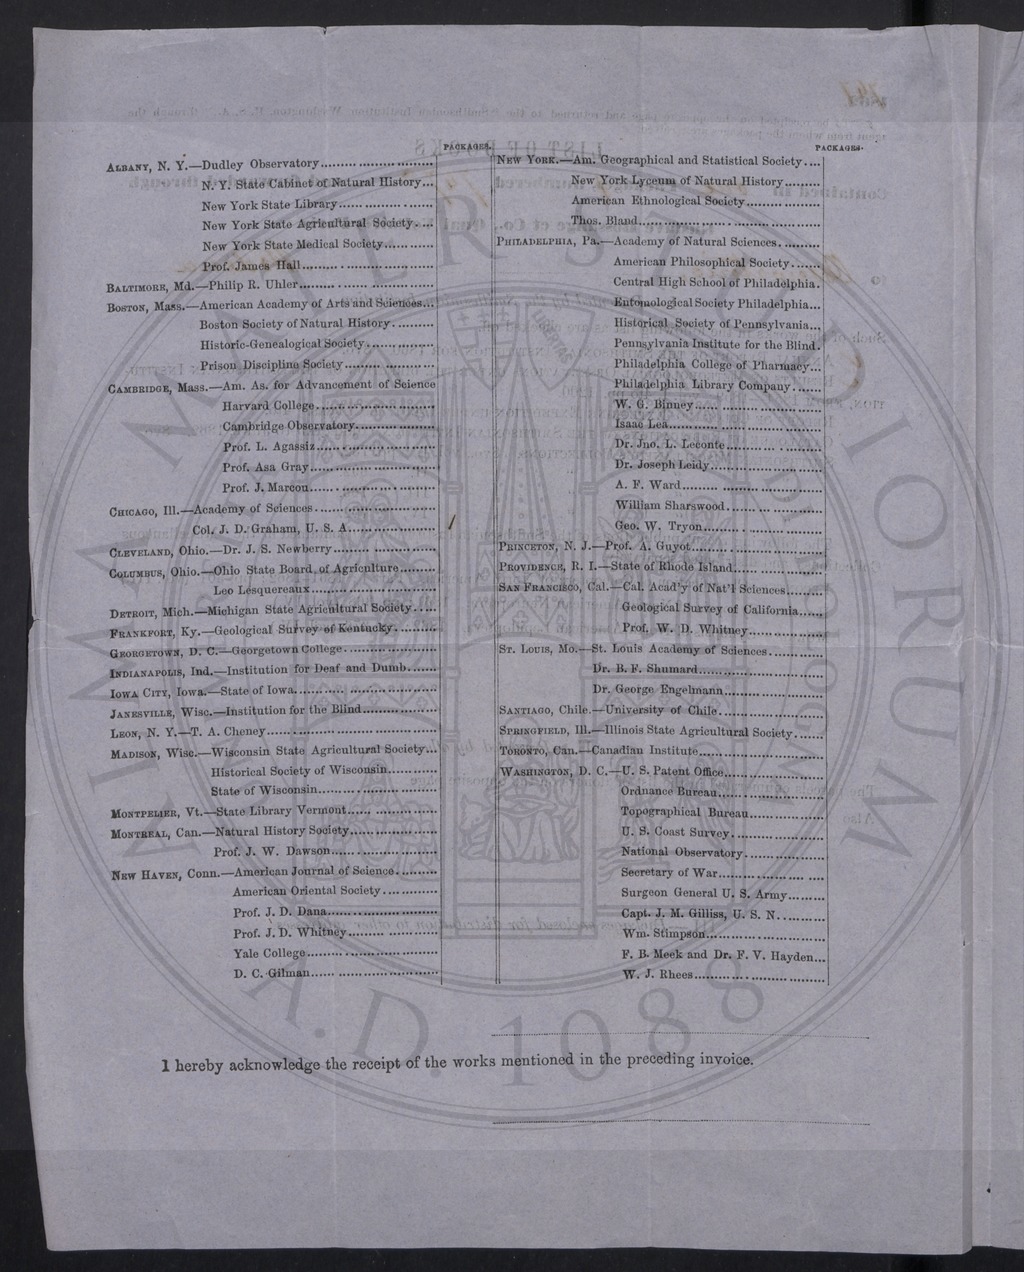 PACKAGES.
ALBANY, N. Y.—Dudley Observatory
N. Y. State Cabinet of Natural History...
New York State Library
New York State Agricultural Society....
New York State Medical Society
Prof. James Hall
BALTIMORE, Md.—Philip R. Uhler
BOSTON, Mass.—American Academy of Arts and Sciences...
Boston Society of Natural History
Historic-Genealogical Society
Prison Discipline Society
CAMBRIDGE, Mass.—Am. As. for Advancement of Science
Harvard College
Cambridge Observatory
Prof. L. Agassiz
Prof. Asa Gray
Prof. J. Marcou
CHICAGO, Ill.—Academy of Sciences
Col. J. D. Graham, U. S. A. /
CLEVELAND, Ohio.—Dr. J. S. Newberry
COLUMBUS, Ohio.—Ohio State Board of Agriculture
Leo Lesquereaux
DETROIT, Mich.—Michigan State Agricultural Society
FRANKFORT, Ky.—Geological Survey of Kentucky
GEORGETOWN, D. C.—Georgetown College
INDIANAPOLIS, Ind.—Institution for Deaf and Dumb
IOWA CITY, Iowa.—State of Iowa
JANESVILLE, Wisc.—Institution for the Blind
LEON, N. Y.—T. A. Cheney
MADISON, Wisc.—Wisconsin State Agricultural Society...
Historical Society of Wisconsin
State of Wisconsin
MONTPELIER, Vt.—State Library Vermont
MONTREAL, Can.—Natural History Society
Prof. J. W. Dawson
NEW HAVEN, Conn.—American Journal of Science
American Oriental Society
Prof. J. D. Dana
Prof. J. D. Whitney
Yale College
D. C. Gilman
PACKAGES.
NEW YORK.—Am. Geographical and Statistical Society....
New York Lyceum of Natural History
American Ethnological Society
Thos. Bland
PHILADELPHIA, Pa.—Academy of Natural Sciences
American Philosophical Society
Central High School of Philadelphia.
Entomological Society Philadelphia...
Historical Society of Pennsylvania...
Pennsylvania Institute for the Blind.
Philadelphia College of Pharmacy...
Philadelphia Library Company
W. G. Binney
Isaac Lea
Dr. Jno. L. Leconte
Dr. Joseph Leidy
A. F. Ward
William Sharswood
Geo. W. Tryon
PRINCETON, N. J.—Prof. A. Guyot
PROVIDENCE, R. I.—State of Rhode Island
SAN FRANCISCO, Cal.—Cal. Acad'y of Nat'l Sciences
Geological Survey of California
Prof. W. D. Whitney
ST. LOUIS, Mo.—St. Louis Academy of Sciences
Dr. B. F. Shumard
Dr. George Engelmann
SANTIAGO, Chile.—University of Chile
SPRINGFIELD, Ill.—Illinois State Agricultural Society
TORONTO, Can.—Canadian Institute
WASHINGTON, D. C.—U. S. Patent Office
Ordnance Bureau
Topographical Bureau
U. S. Coast Survey
National Observatory
Secretary of War
Surgeon General U. S. Army
Capt. J. M. Gilliss, U. S. N.
Wm. Stimpson
F. B. Meek and Dr. F. V. Hayden...
W. J. Rhees
I hereby acknowledge the receipt of the works mentioned in the preceding invoice.
A.D. 1088